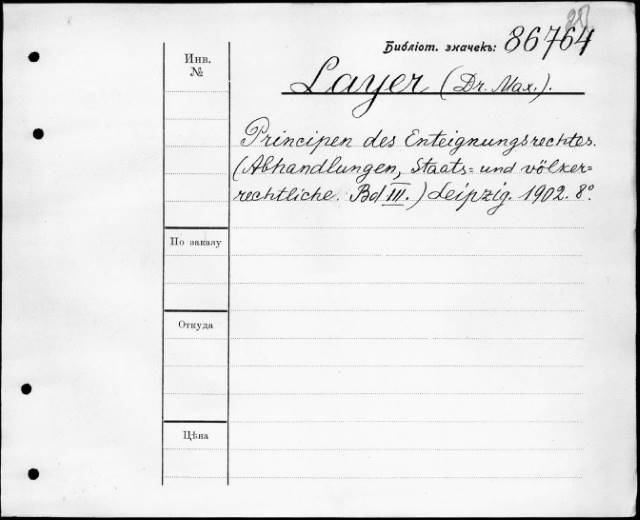 Библіот. значекъ: 86764
Инв.
№
Layer (Dr. Max.).
Principen des Enteignungsrechtes.
(Abhandlungen, Staats= und völker=
rechtliche. Bd III.) Leipzig. 1902. 8º.
По заказу
Откуда
Цѣна